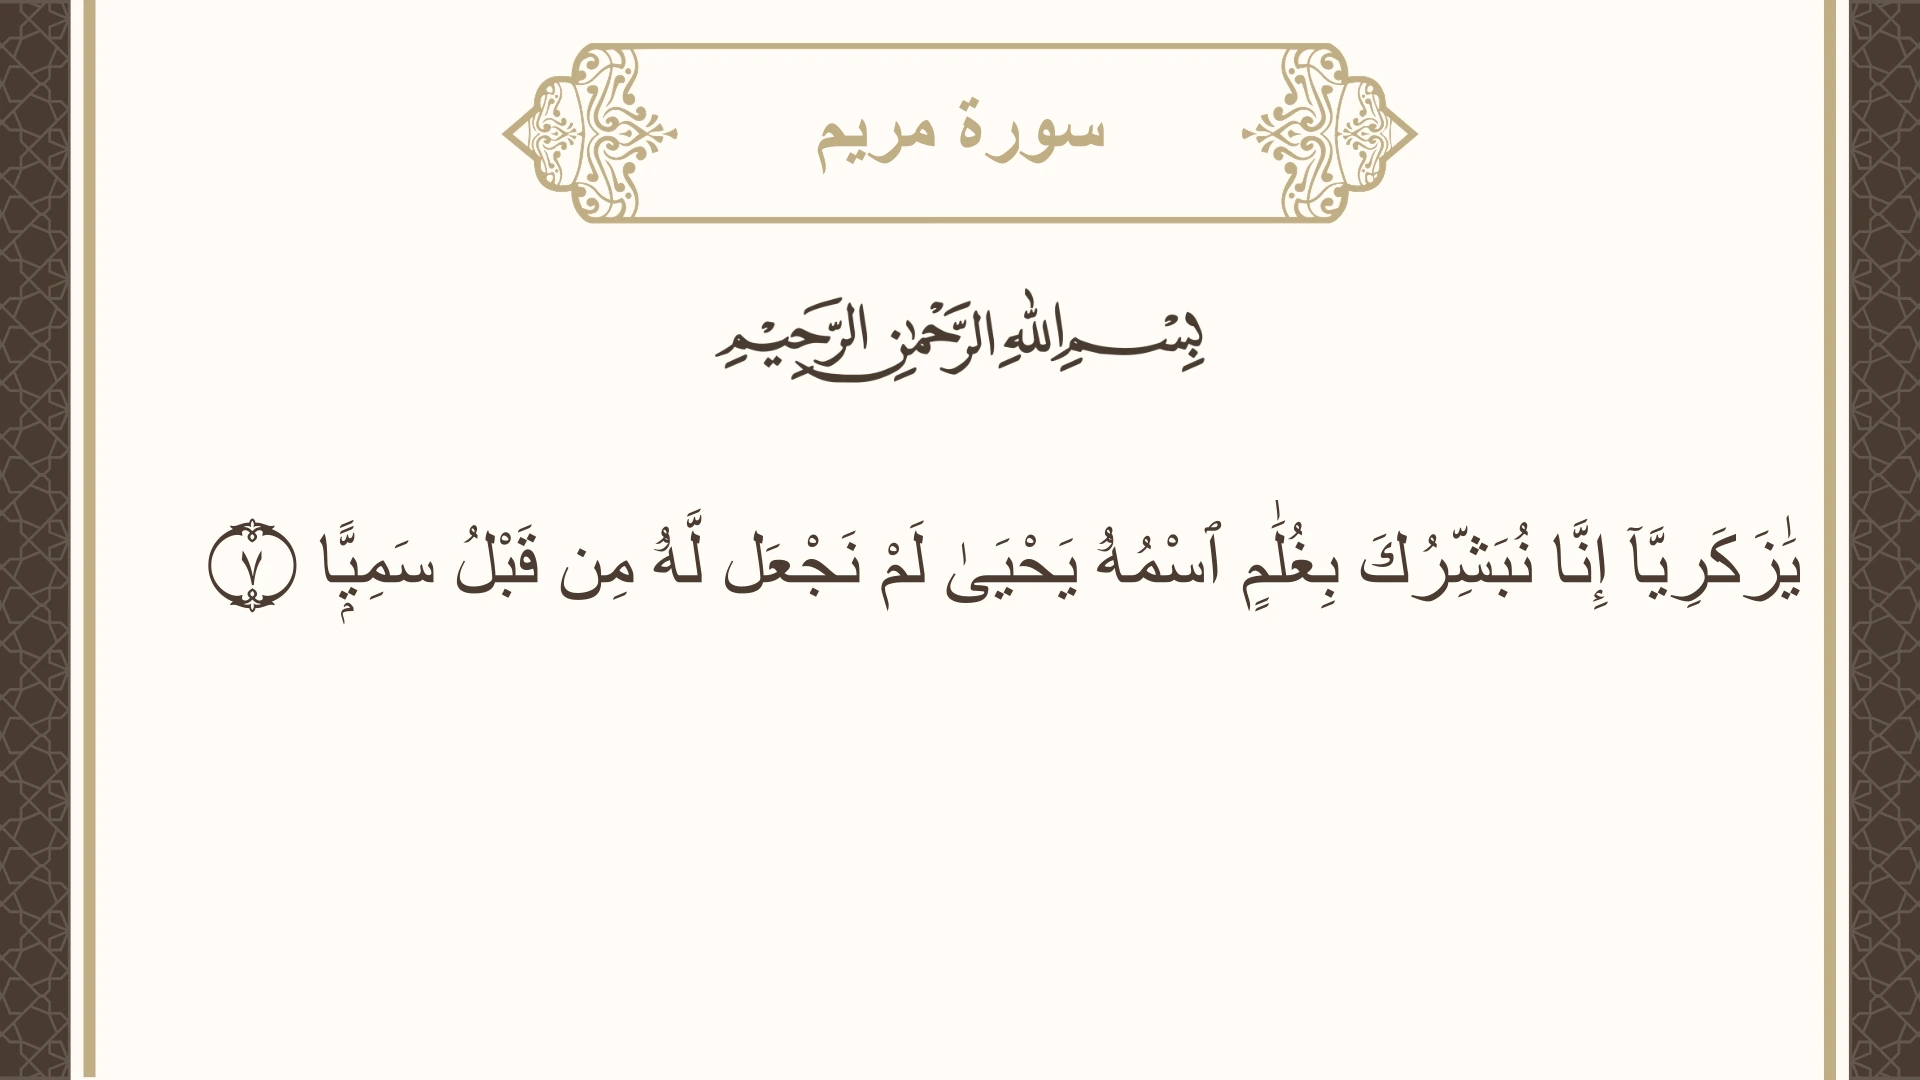 سورة مريم
بِسْمِ اللهِ الرَّحْمٰنِ الرَّحِيْمِ
يَٰزَكَرِيَّآ إِنَّا نُبَشِّرُكَ بِغُلَٰمٍ ٱسْمُهُۥ يَحْيَىٰ لَمْ نَجْعَل لَّهُۥ مِن قَبْلُ سَمِيًّۭا ٧